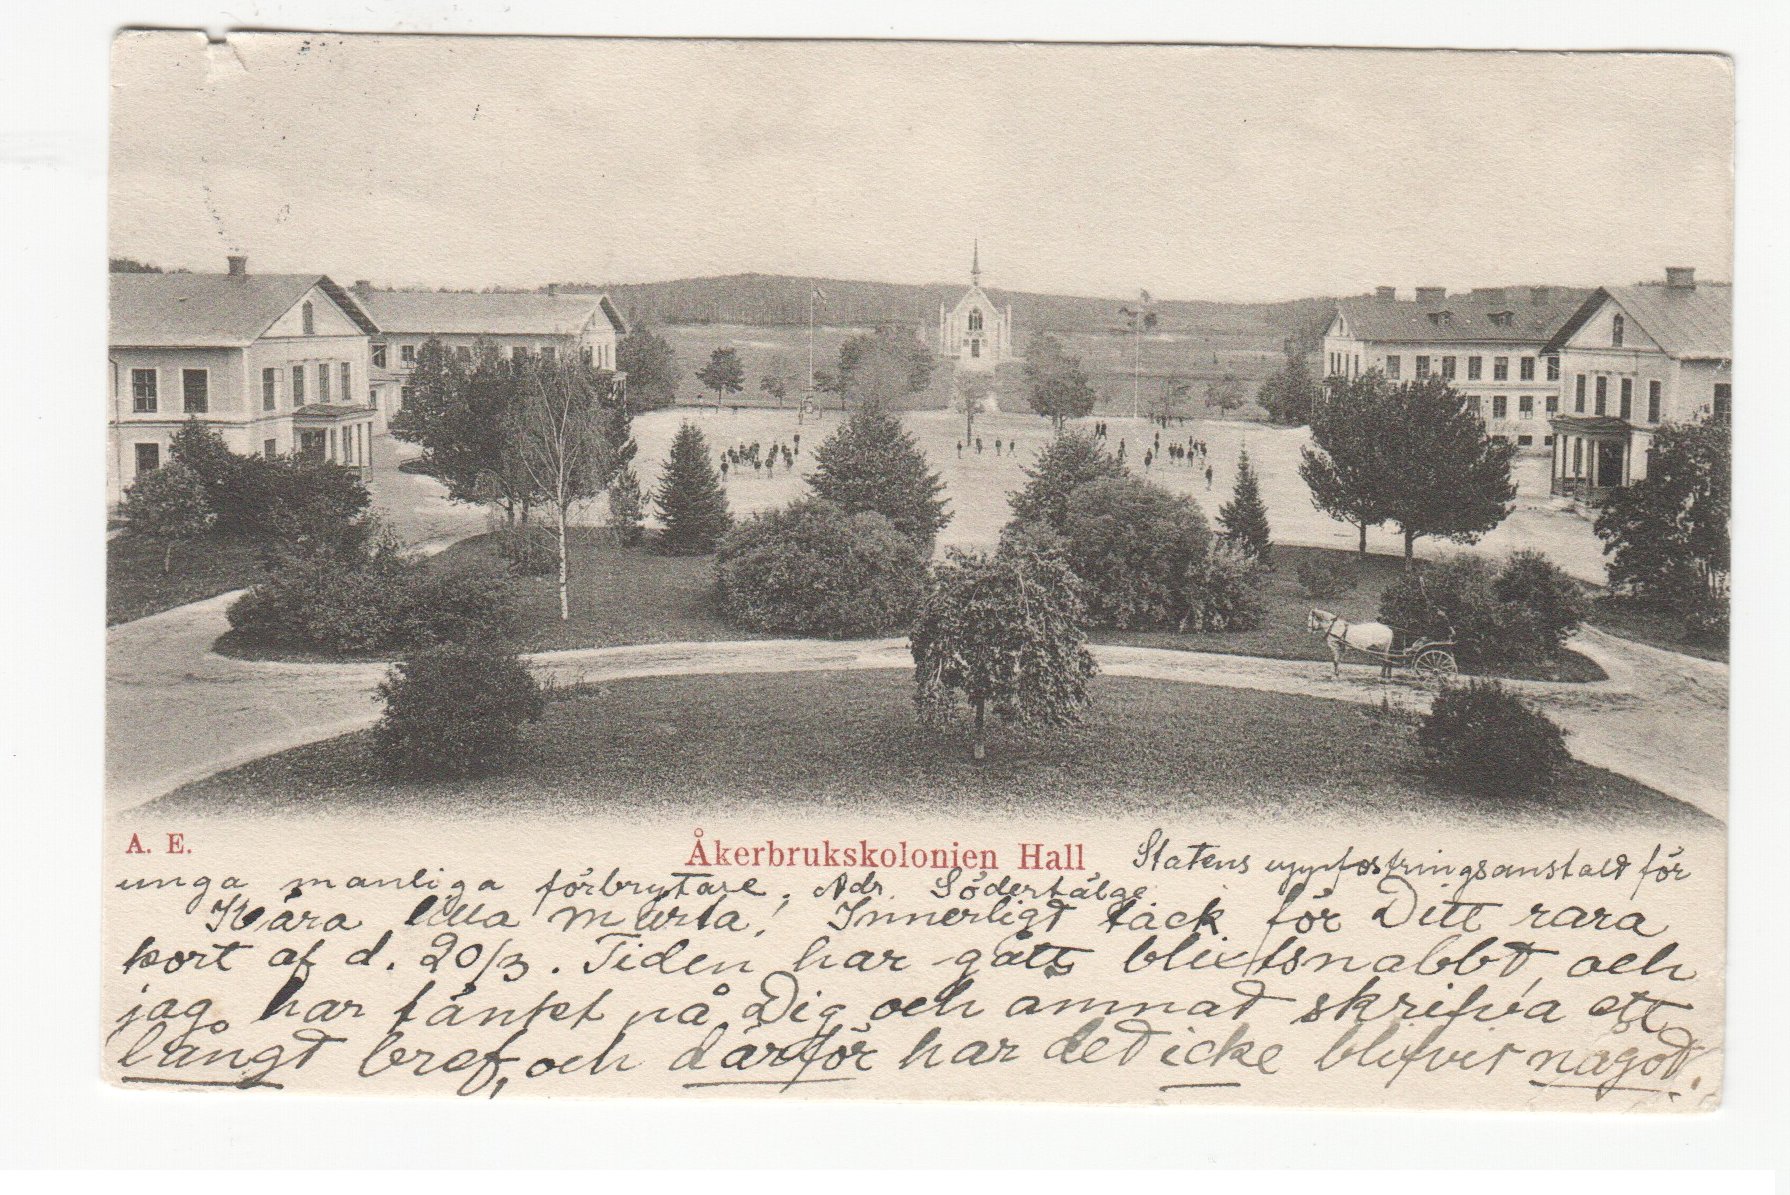 A. E.
Åkerbrukskolonien Hall
Statens uppfostringsanstalt för
unga manliga förbrytare. Adr. Södertälge
Kära lilla Märta! Innerligt tack för Ditt rara
kort af d. 20/3. Tiden har gått blixtsnabbt och
jag har tänkt på Dig och ämnat skrifva ett
långt bref, och därför har det icke blifvit något.